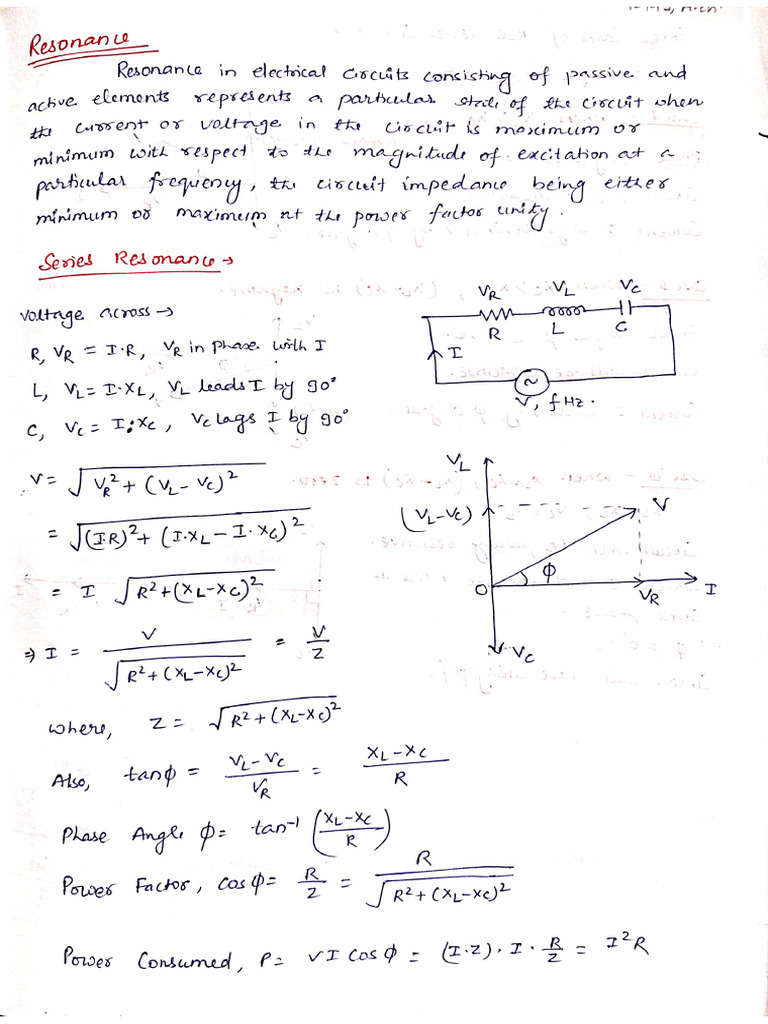 Resonance
Resonance in electrical circuits consisting of passive and
active elements represents a particular state of the circuit when
the current or voltage in the circuit is maximum or
minimum with respect to the magnitude of excitation at a
particular frequency, the circuit impedance being either
minimum or maximum at the power factor unity.
Series Resonance →
Voltage across →
R, V_R = I·R, V_R in phase with I
L, V_L = I·X_L, V_L leads I by 90°
C, V_C = I·X_C, V_C lags I by 90°
V_R V_L V_C
R L C
I
~
V, f Hz.
V = √(V_R² + (V_L - V_C)²)
= √((I·R)² + (I·X_L - I·X_C)²)
= I √(R² + (X_L - X_C)²)
⇒ I = V / √(R² + (X_L - X_C)²) = V/Z
V_L
(V_L - V_C)
V
ϕ
O
V_R
I
V_C
where, Z = √(R² + (X_L - X_C)²)
Also, tanϕ = (V_L - V_C)/V_R = (X_L - X_C)/R
Phase Angle ϕ = tan⁻¹ ((X_L - X_C)/R)
Power Factor, cosϕ = R/Z = R / √(R² + (X_L - X_C)²)
Power Consumed, P = VI cosϕ = (I·Z)·I·R/Z = I²R